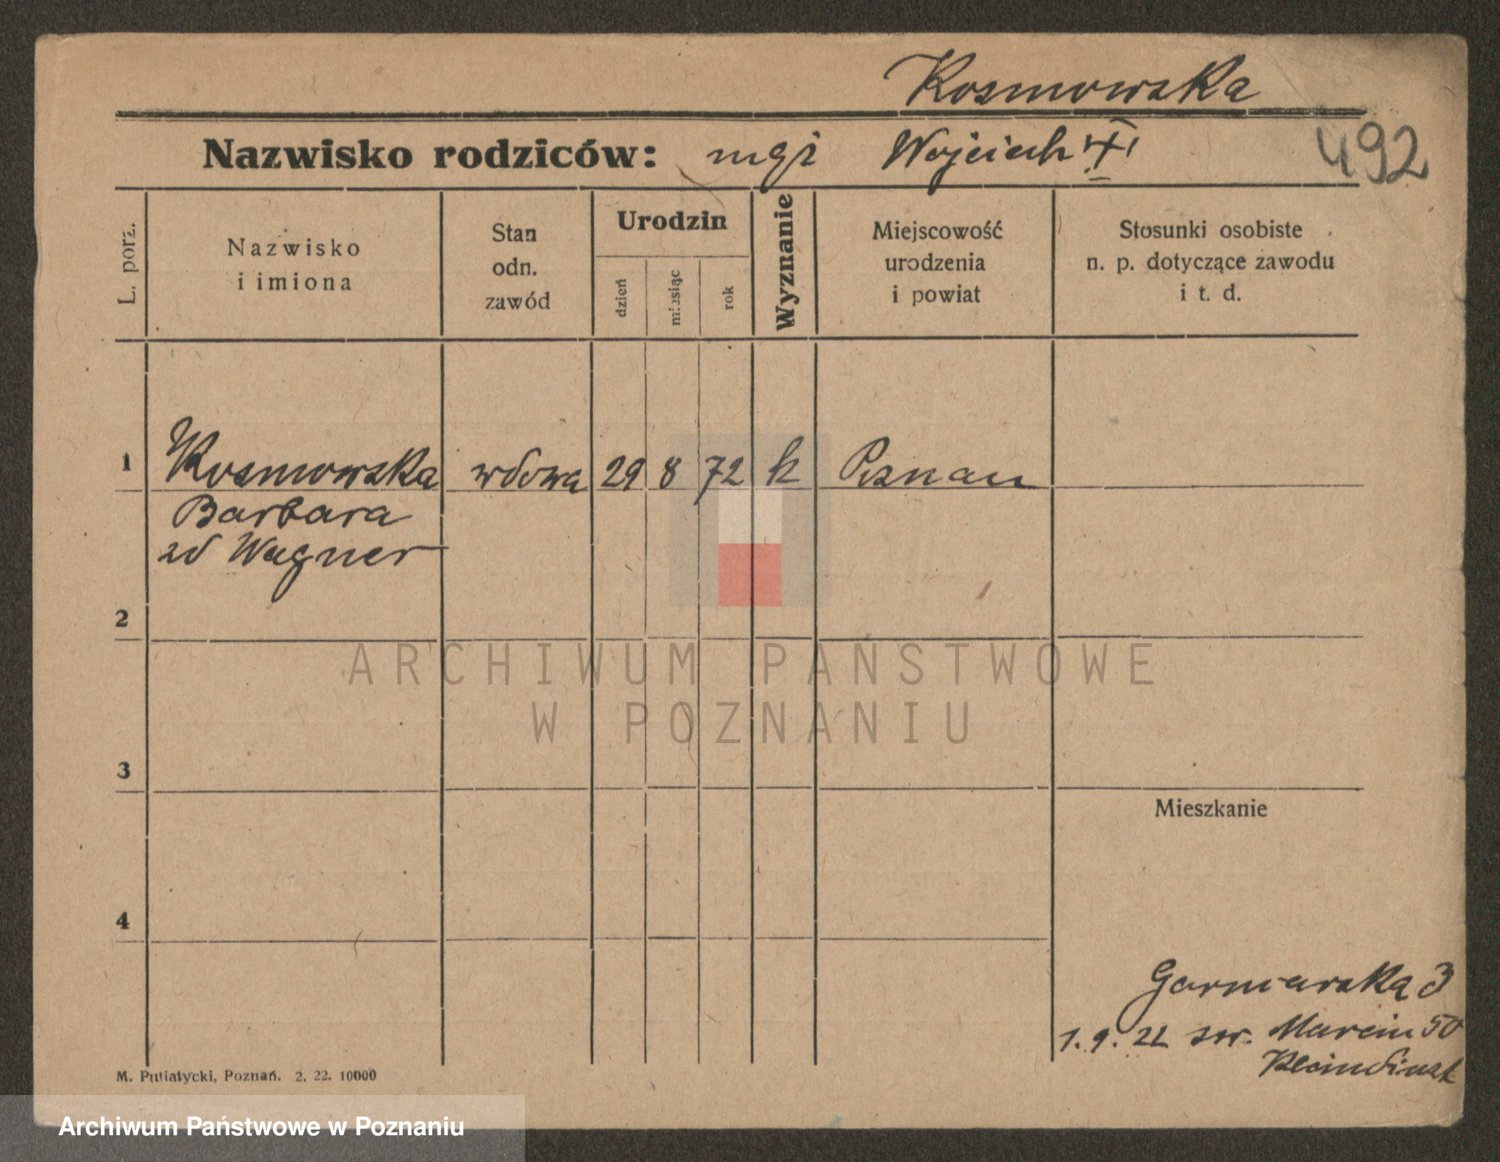 Kosmowska
Nazwisko rodziców: Wojciech
492
L. porz.
Nazwisko
i imiona
Stan
odn.
zawód
Urodzin
dzień
miesiąc
rok
Wyznanie
Miejscowość
urodzenia
i powiat
Stosunki osobiste
n. p. dotyczące zawodu
i t. d.
1 Kosmowska wdowa 29 8 72 k Poznan
Barbara
zd Wagner
2
3
Mieszkanie
4
Garncarska 3
1. 9. 22 Marcin 50
M. Putiatycki, Poznań. 2. 22. 10000
ARCHIWUM PAŃSTWOWE
W POZNANIU
Archiwum Państwowe w Poznaniu